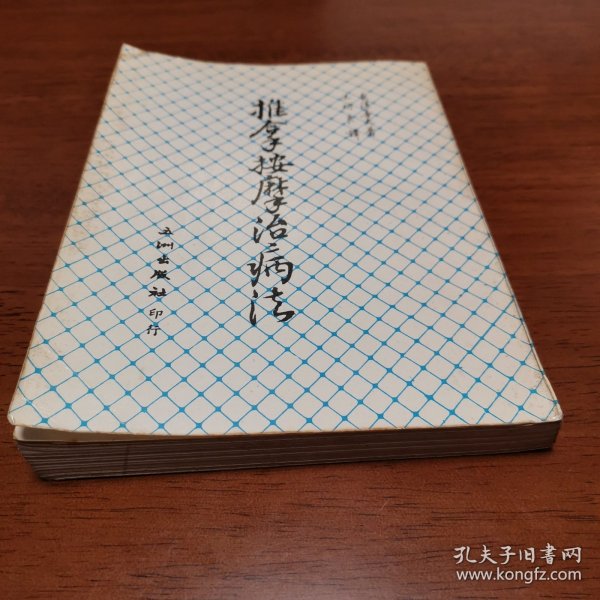 推拿按摩治病法
五洲出版社印行
孔夫子旧書网
www.kongfz.com